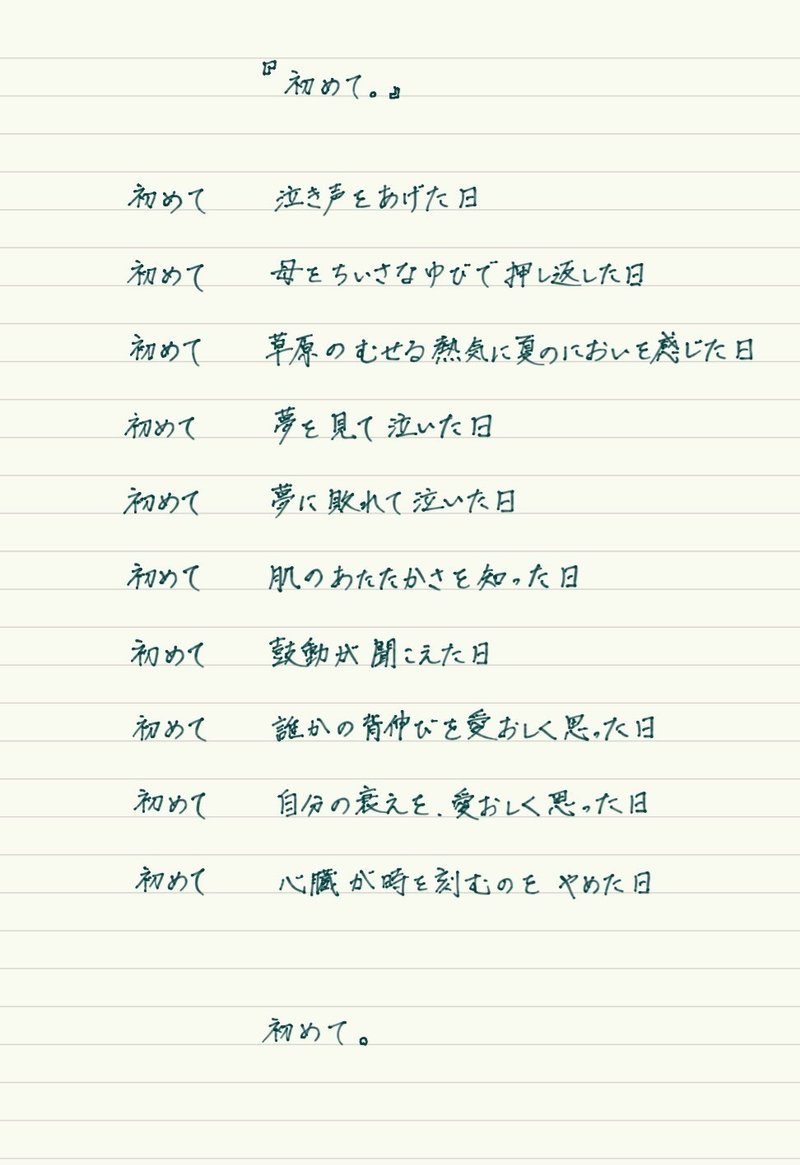 『初めて。』
初めて 泣き声をあげた日
初めて 母をちいさなゆびで押し返した日
初めて 草原のむせる熱気に夏のにおいを感じた日
初めて 夢を見て泣いた日
初めて 夢に敗れて泣いた日
初めて 肌のあたたかさを知った日
初めて 鼓動が聞こえた日
初めて 誰かの背伸びを愛おしく思った日
初めて 自分の衰えを、愛おしく思った日
初めて 心臓が時を刻むのをやめた日
初めて。